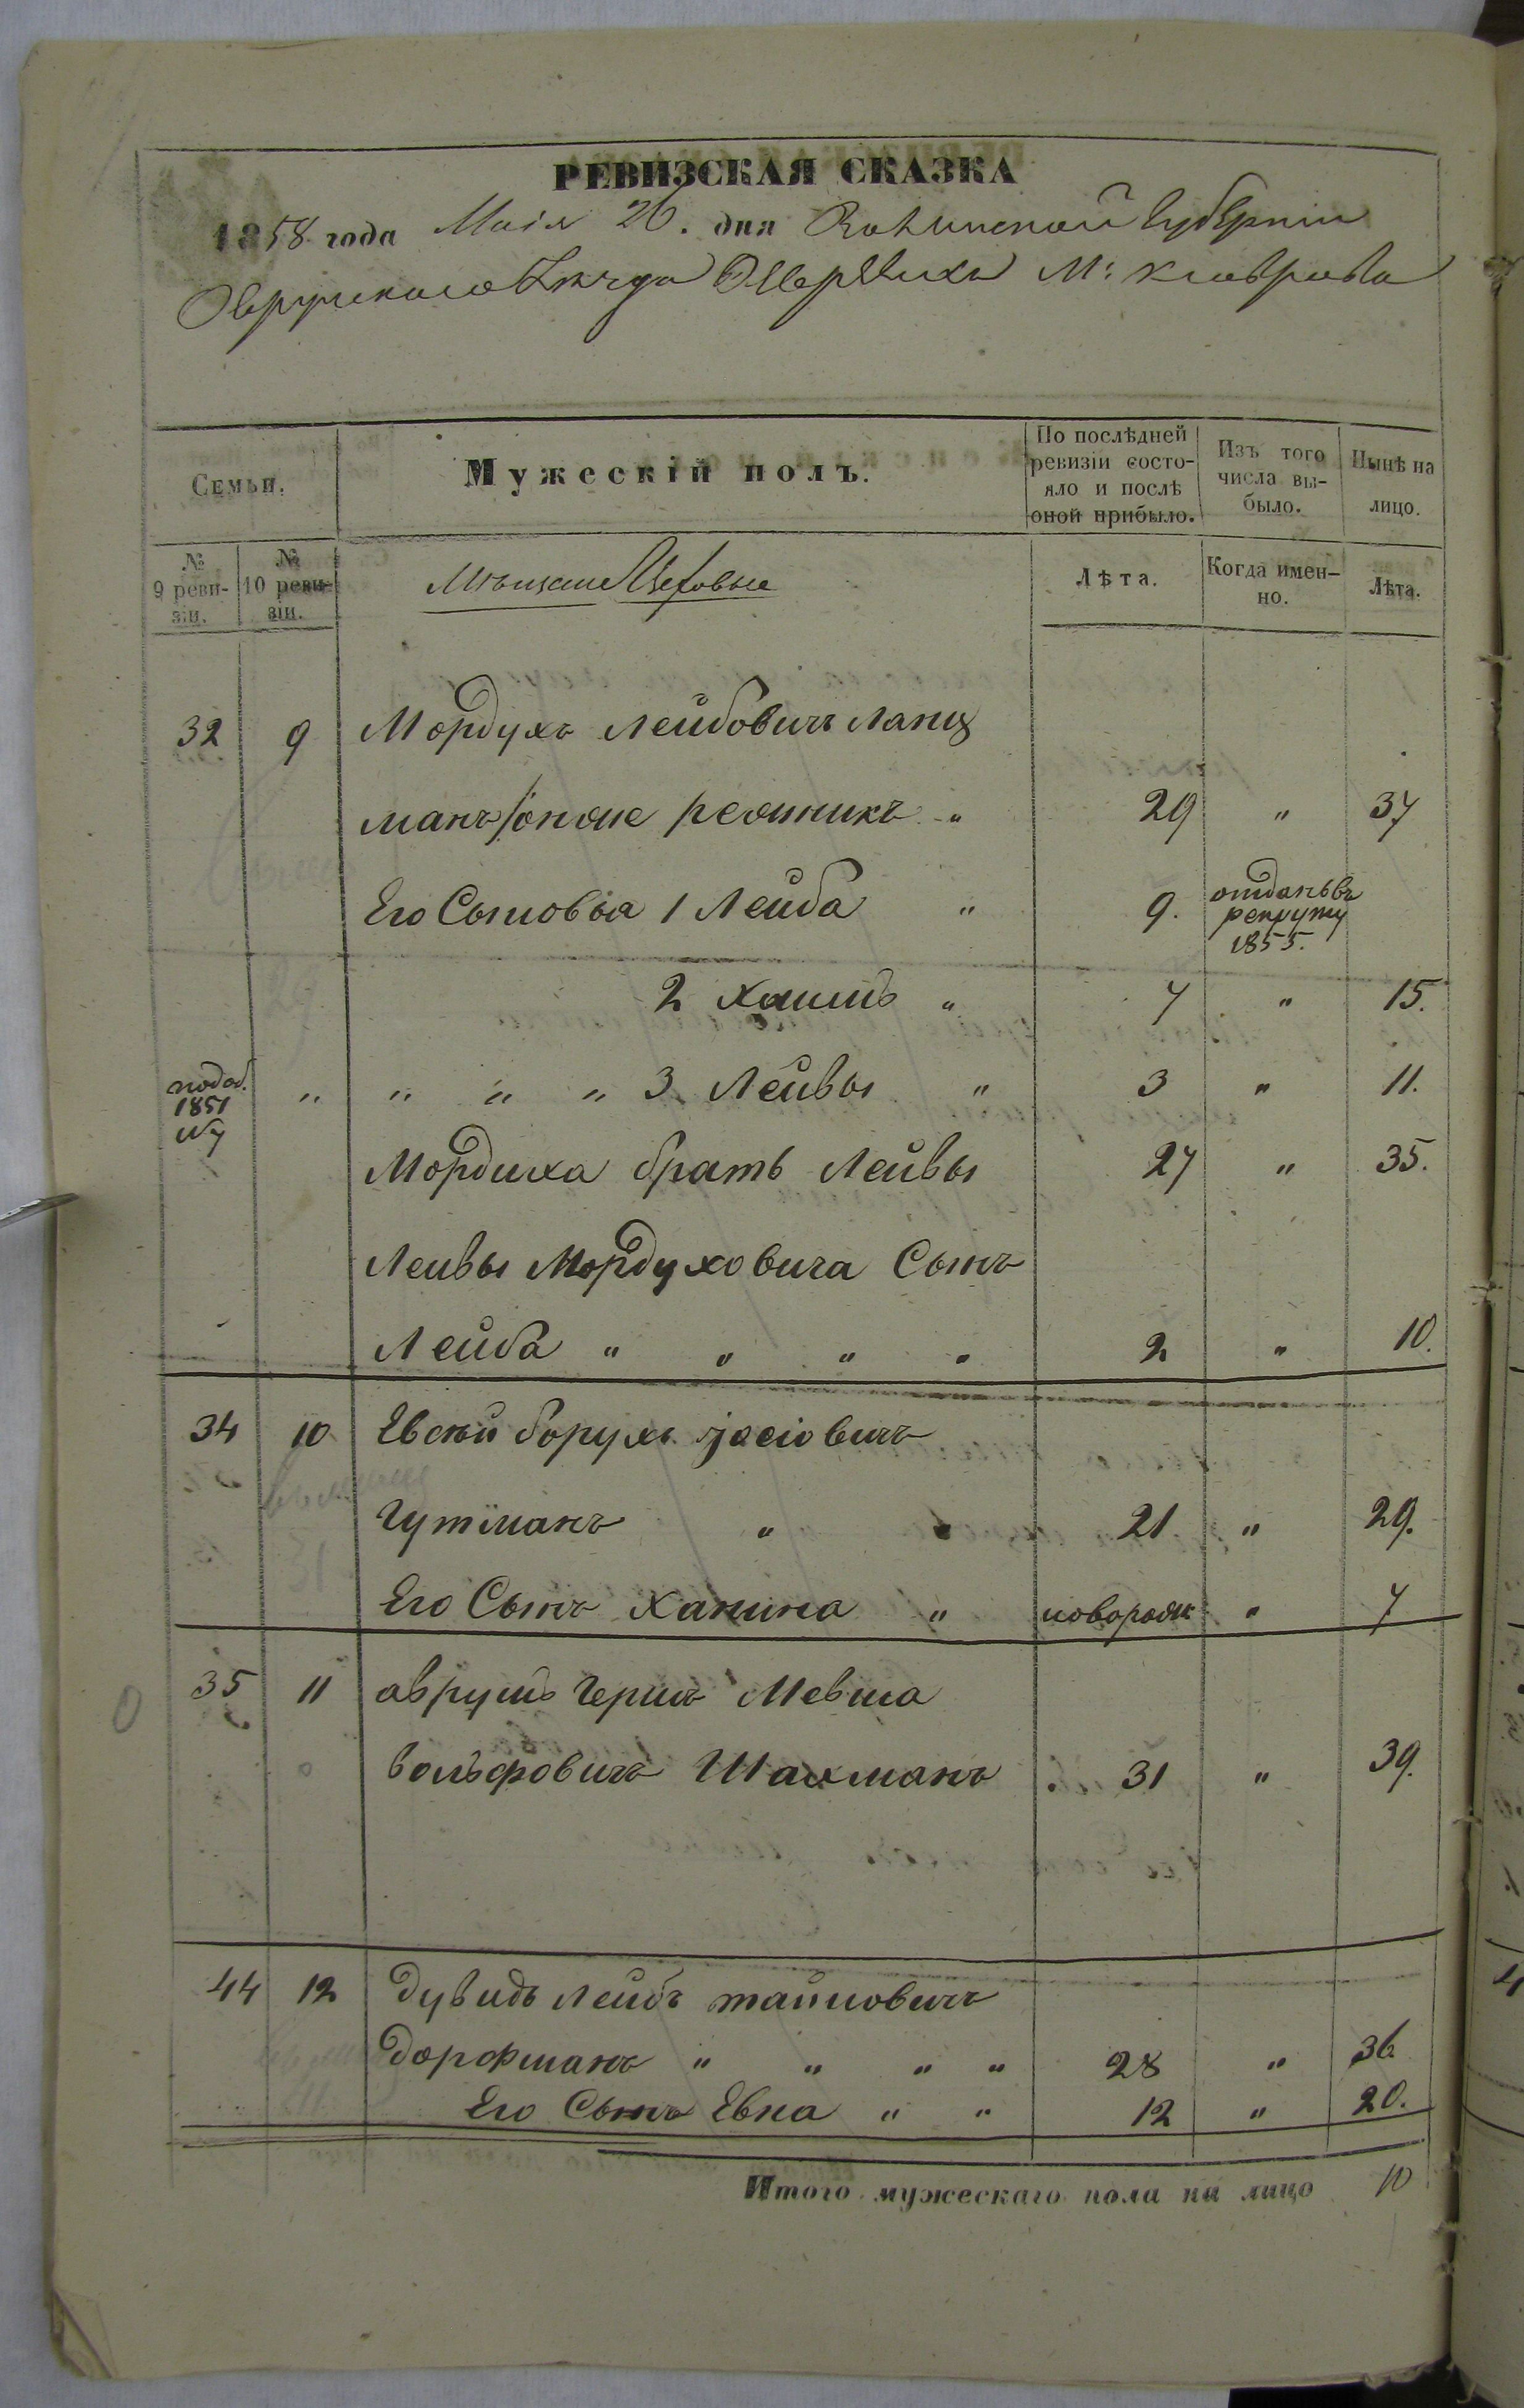 РЕВИЗСКАЯ СКАЗКА
1858 года Маія 26. дня Волынской Губерніи
Овручскаго Уѣзда Еврѣиха М: Народичъ
Семьи.
Мужескій полъ.
По послѣдней ревизіи состояло и послѣ оной прибыло.
Изъ того числа выбыло.
Нынѣ на лицо.
№ 9 ревизіи.
№ 10 ревизіи.
Мѣщане Цеховые
Лѣта.
Когда именно.
Лѣта.
32 9 Мордухъ Лейбовичъ Ланц
манъ/онже резникъ " 29 " 37
Его Сыновья 1 Лейба " 9. отданъ въ рекруты 1855.
2 Хаимъ " 7 " 15.
1851 №7 " " " " 3 Лейвы " 3 " 11.
Мордуха братъ Лейвы 27 " 35.
Лейвы Мордуховича Сынъ
Лейба " " " " 2 " 10.
34 10 Евсѣй борухъ Іосіовичъ
Гутманъ " " 21 " 29.
Его Сынъ Ханина " новорожд " 7
35 11 аврумъ Герш Мевша
вольфовичъ Шахманъ 31 " 39.
44 12 Дувидъ Лейбъ
Дорфманъ " " " " 28 " 36
Его Сынъ Евна " " 12 " 20.
Итого мужескаго пола на лицо 10